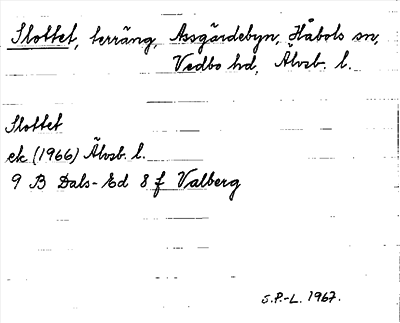 Slottet, terräng, Assgärdebyn, Håbols sn,
Vedbo hd, Älvsb. l.
Slottet
ek (1966) Älvsb. l.
9 B Dals-Ed 8 f Valberg
S.P.-L. 1967.